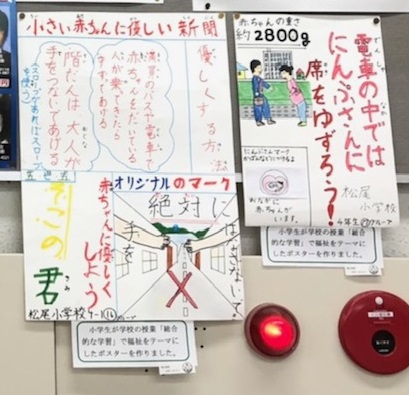 小さい赤ちゃんに優しい新聞
優しくする方法
満員のバスや電車で
赤ちゃんをだいている
人が乗ってきたら
階だんは大人が
手をつないであげる
スロープがあればスロープ
を使う
そこの
君
きみ
赤ちゃんに優しく
しよう
オリジナルのマーク
絶対に
手を
はなさないで!
松尾小学校
グループ
小学生が学校の授業「総合
的な学習」で福祉をテーマに
したポスターを作りました。
赤ちゃんの重さ
約2800g
電車の中では
でんしゃ
にんぷさんに
席をゆずろう!
せき
にんぷさんマーク
おなかに
赤ちゃんが
います。
松尾
小学校
4年生
グループ
小学生が学校の授業「総合
的な学習」で福祉をテーマに
したポスターを作りました。